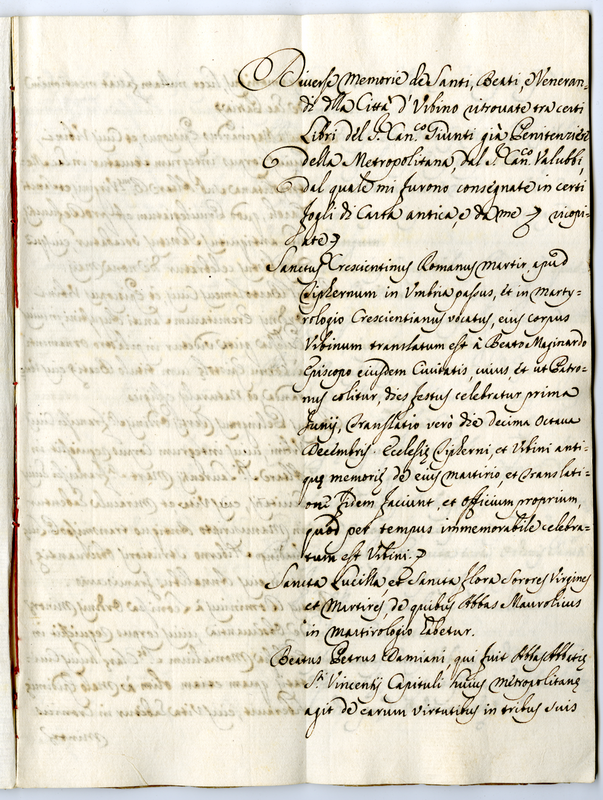 Diverse Memorie de Santi, Beati, e Veneran-
di della Città d'Vbino ritrouate tra certi
Libri del S.r Can.co Giunti già Penitenziere
della Metropolitana, dal S.r Can.co Valubbi,
dal quale mi furono consegnate in certi
fogli di Carta antica, e da me ricopi-
ate
Sanctus Crescientinus Romanus Martir, apud
Tiphernum in Vmbria passus, et in Marty-
rologio Crescientianus vocatus, eius corpus
Vrbinum translatum est à Beato Mainardo
Episcopo eiusdem Ciuitatis, cuius, et ut Patro-
nus colitur, dies festus celebratur prima
Junij, Translatio verò die decima octaua
Decembris. Ecclesię Tipherni, et Vrbini anti-
quę memorię de eius martirio, et translati-
one fidem faciunt, et officium proprium,
quod per tempus immemorabile celebra-
tum est Vrbini.
Sancta Lucilla, et Sancta Flora Sorores Virgines
et Martires, de quibus Abbas Maurolicus
in martirologio habetur.
Beatus Petrus Damiani, qui fuit Abbas Abbatię
S.ti Vincentij Capituli huius metropolitanę
agit de earum virtutibus in tribus suis